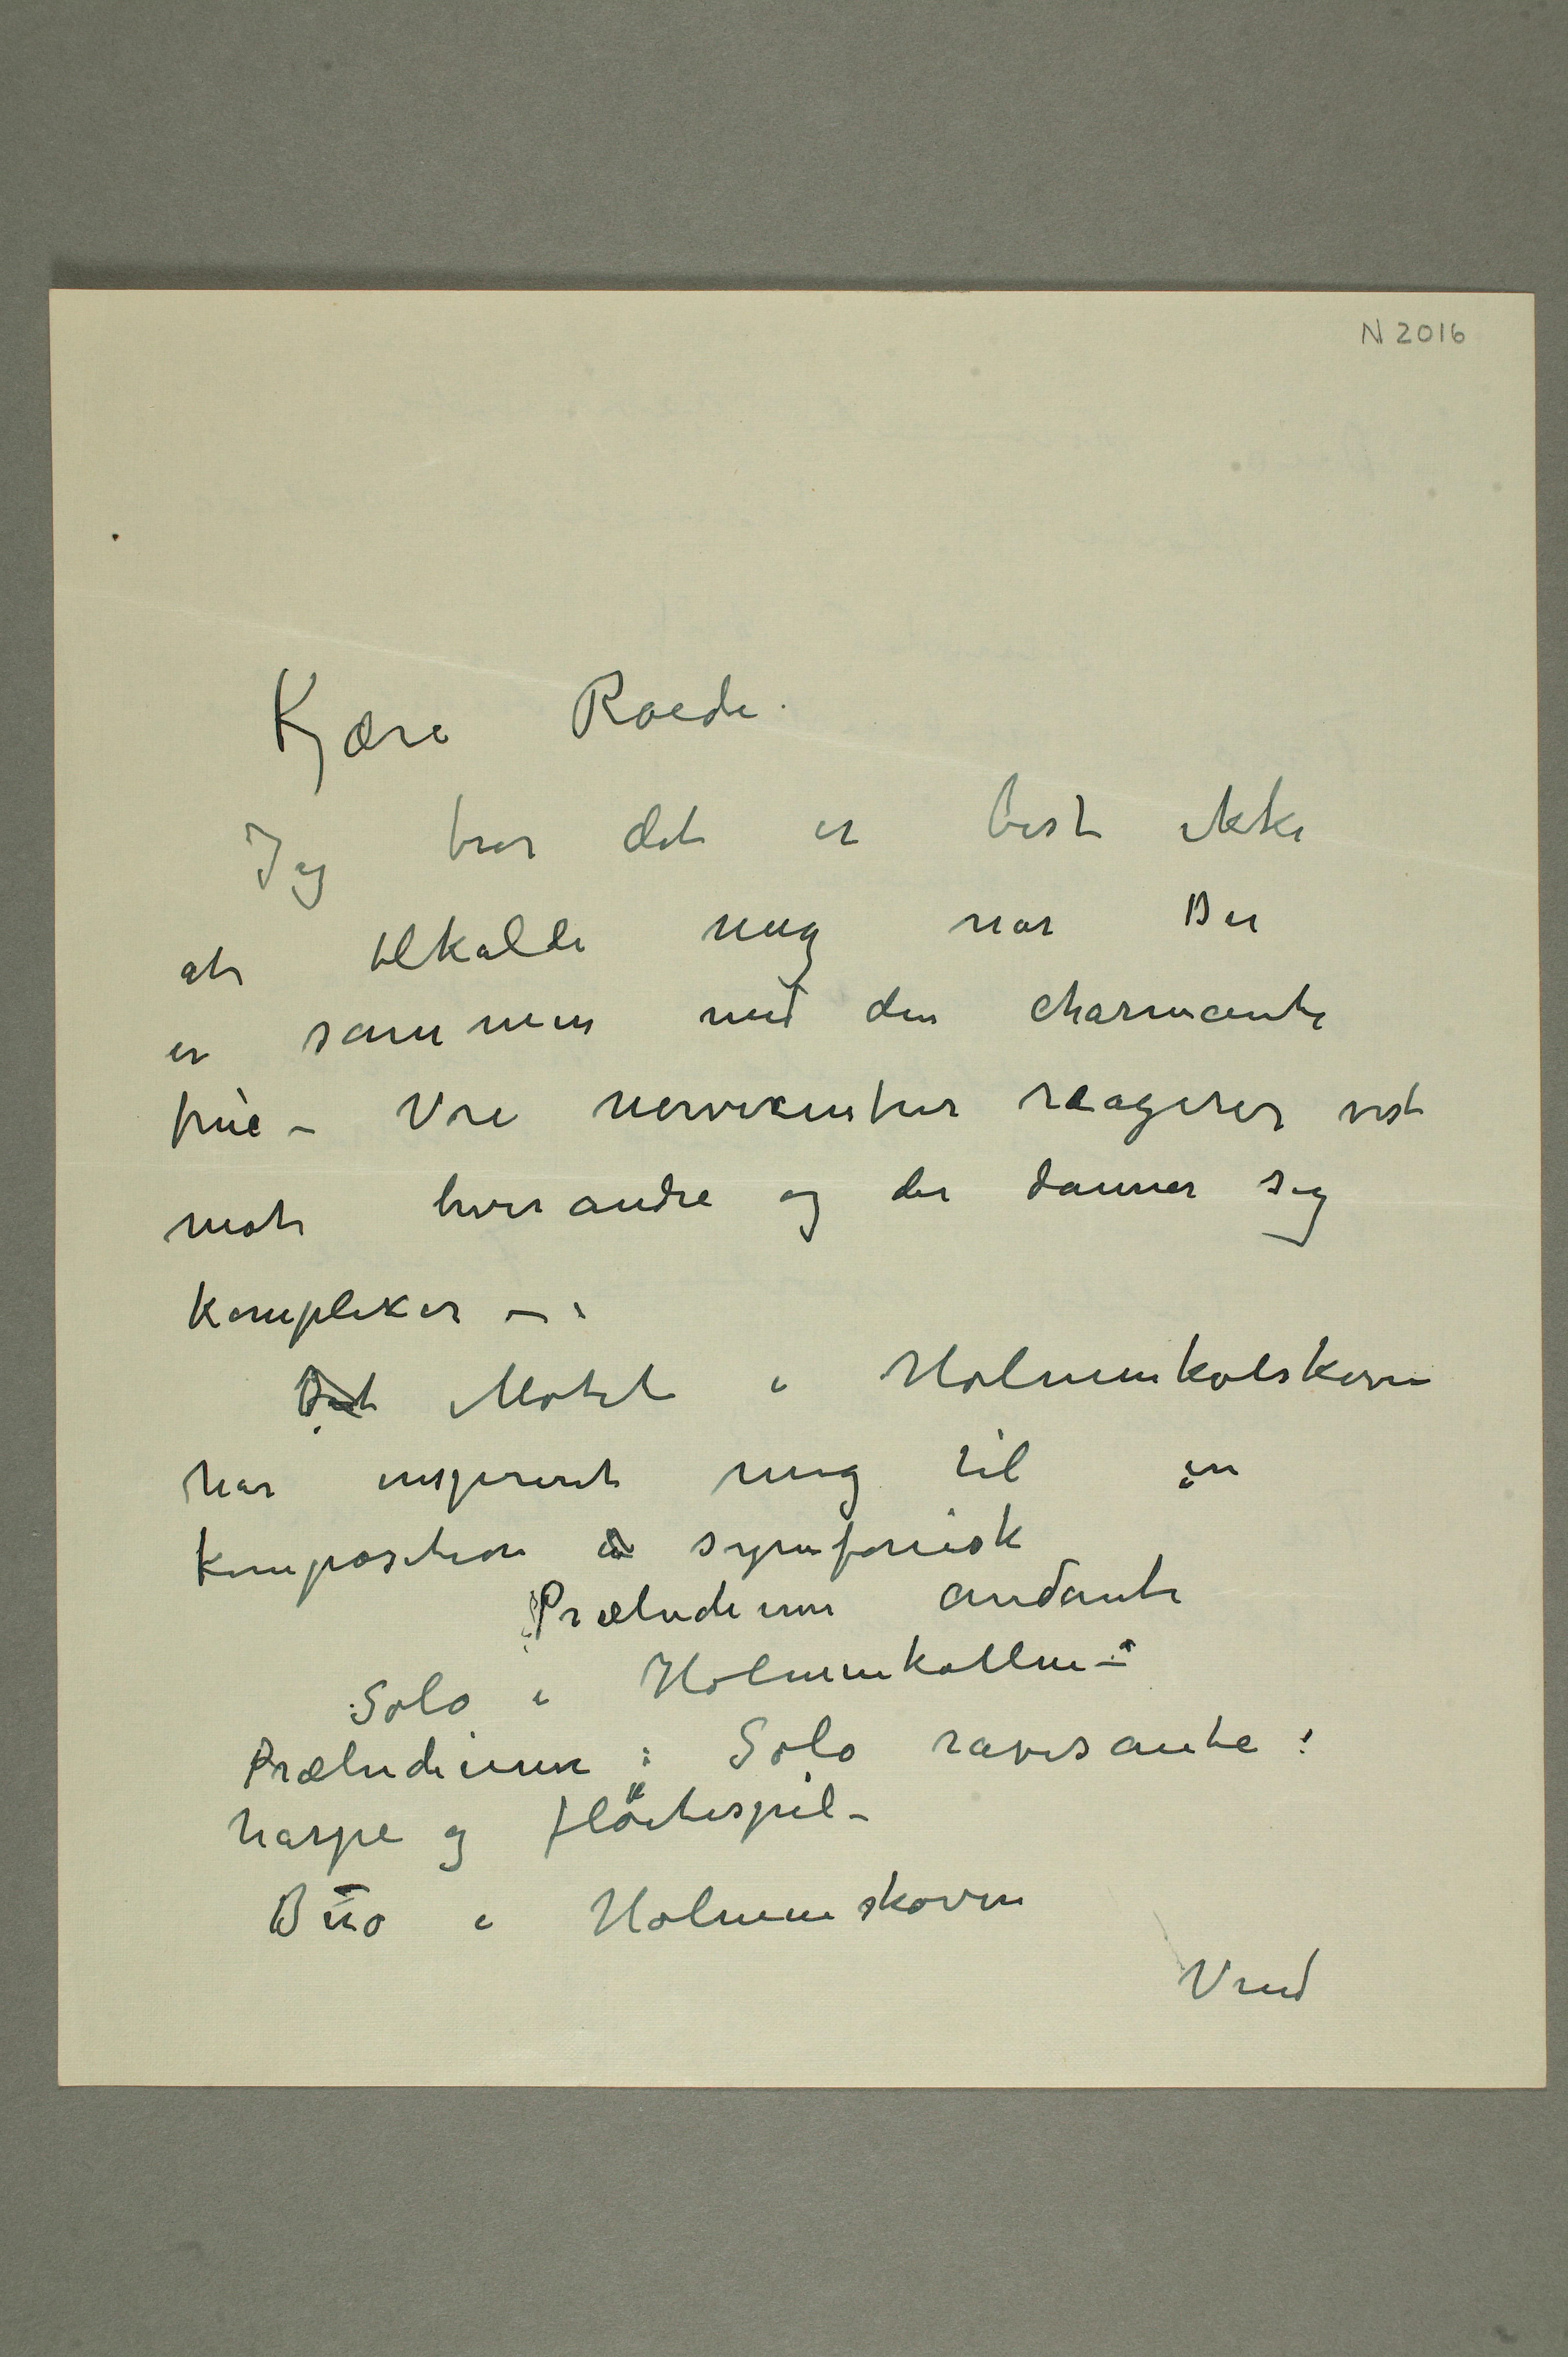 N 2016
Kjære Roede.
Jeg tror det er best ikke
at tilkalde meg når De
er sammen med den charmante
frue – Vre nervecentrer reagerer vist
mot hverandre og der danner sig
komplekser –.
Det Motet i Holmenkolskoven
har inspireret meg til en
komposition symfonisk
Præludium andante
Solo i Holmenkollen –
Præludium : Solo ravisante :
harpe og flöitespil –
Duo i Holmenskoven